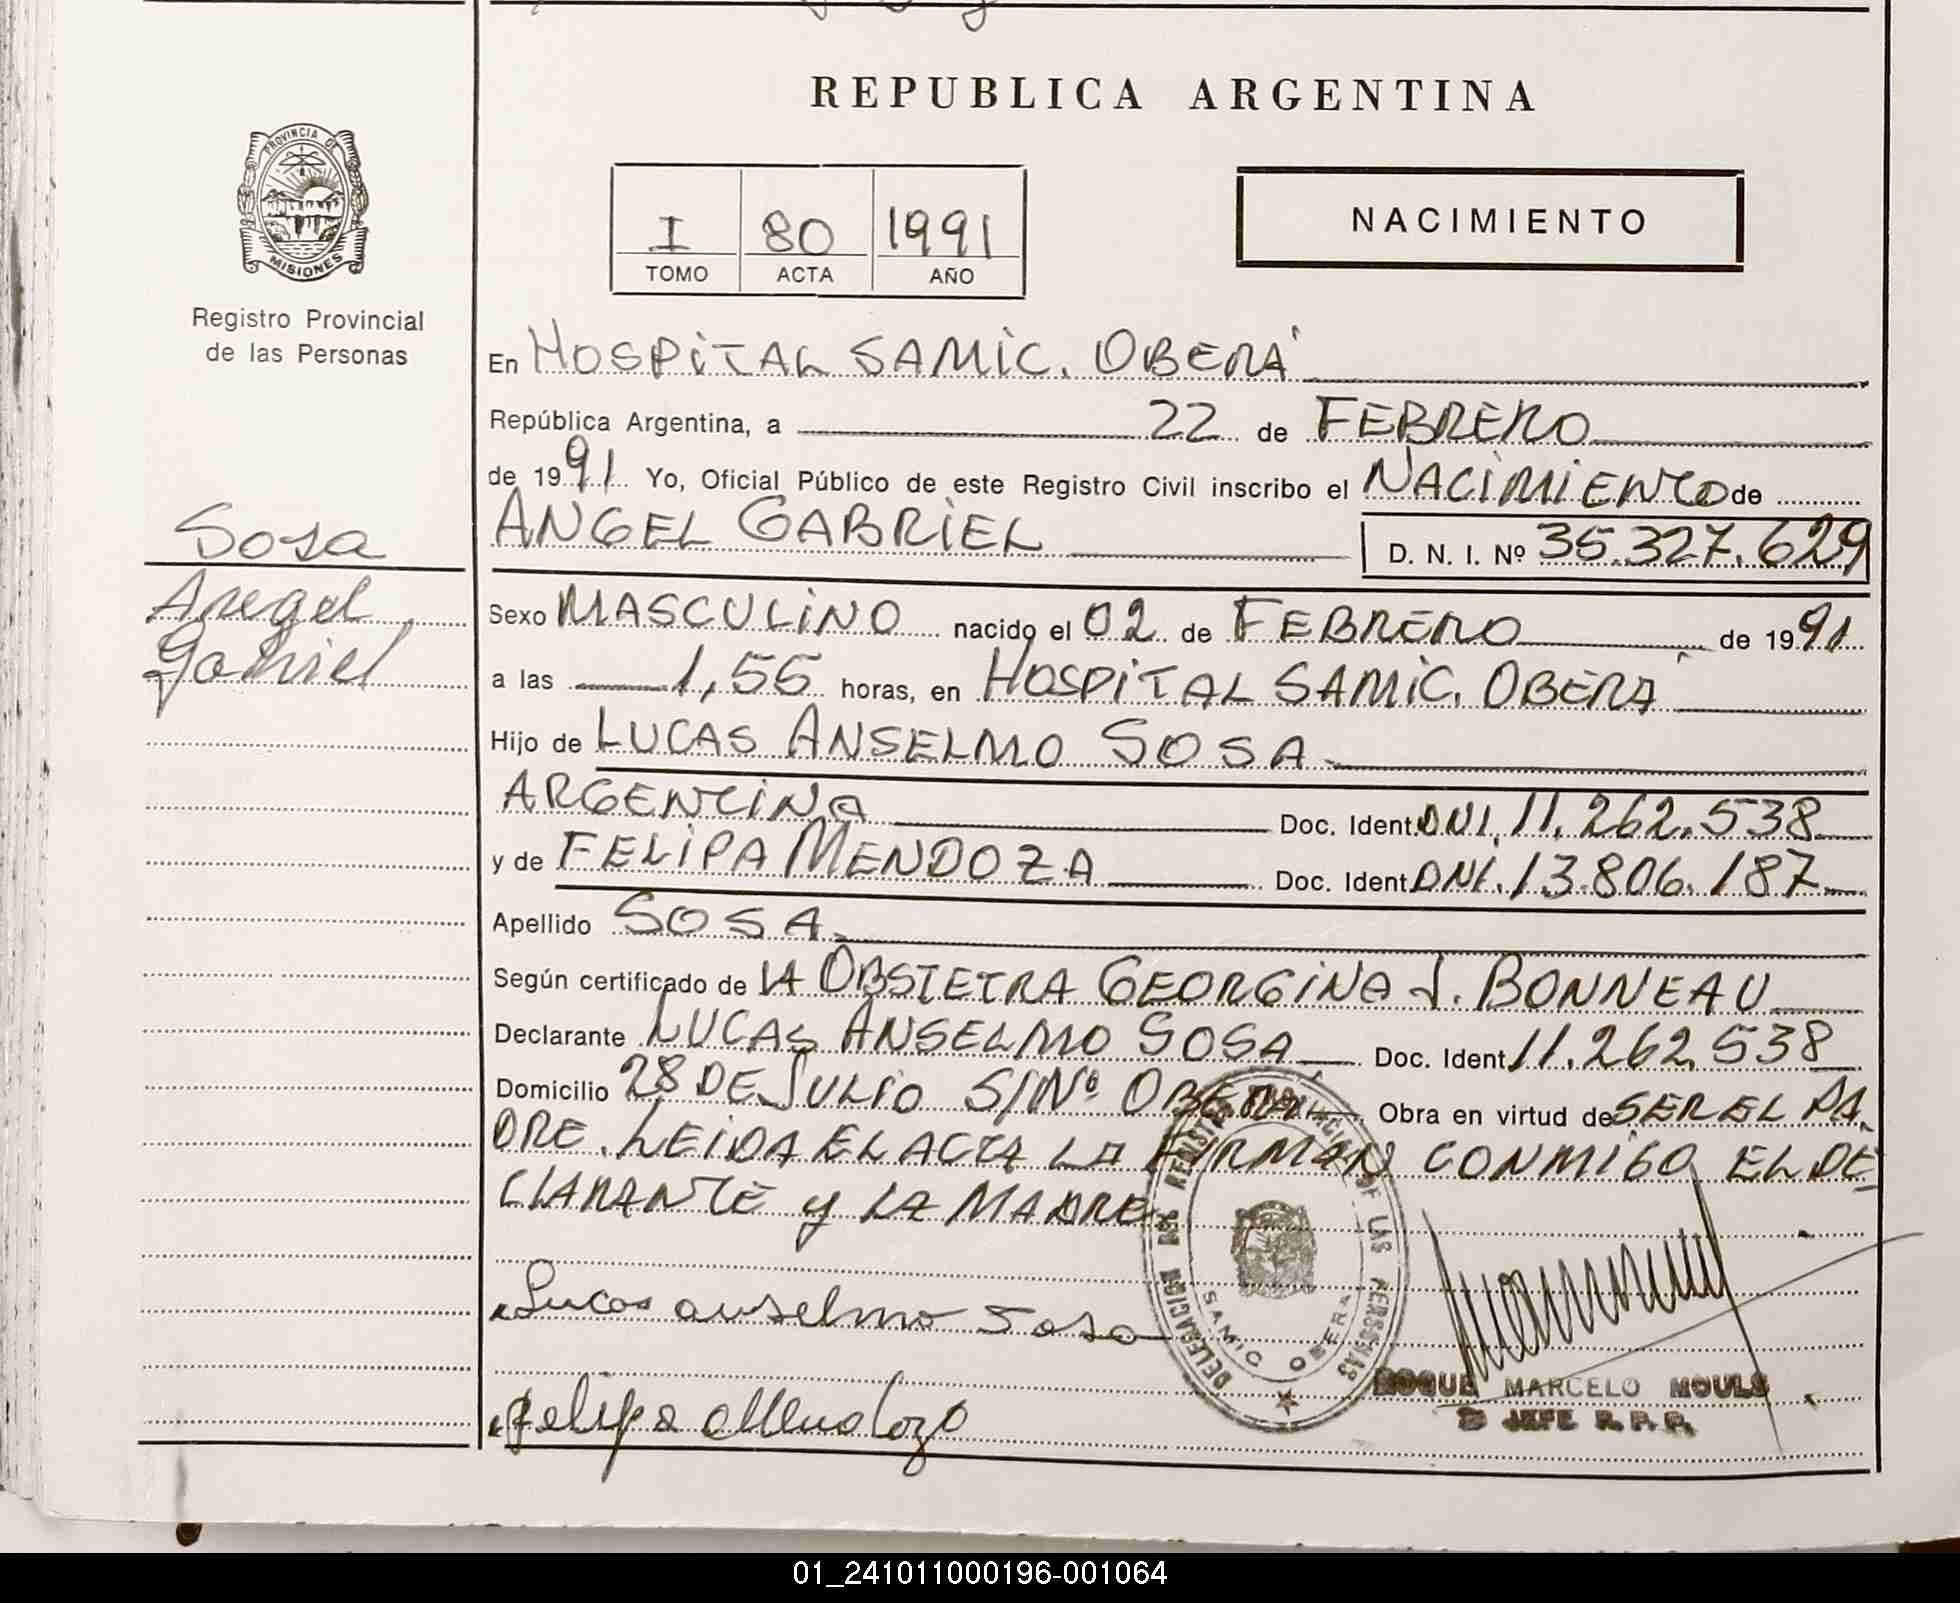 REPUBLICA ARGENTINA
PROVINCIA DE
MISIONES
Registro Provincial
de las Personas
I 80 1991
TOMO ACTA AÑO
NACIMIENTO
En HOSPITAL SAMIC. OBERÁ
República Argentina, a 22 de FEBRERO
de 1991 Yo, Oficial Público de este Registro Civil inscribo el NACIMIENTO de
ANGEL GABRIEL D. N. I. Nº 35.327.629
Sosa
Angel
Gabriel
Sexo MASCULINO nacido el 02 de FEBRERO de 1991
a las 1,55 horas, en HOSPITAL SAMIC. OBERÁ
Hijo de LUCAS ANSELMO SOSA
ARGENTINA Doc. Ident. DNI. 11.262.538
y de FELIPA MENDOZA Doc. Ident DNI. 13.806.187
Apellido SOSA
Según certificado de LA OBSTETRA GEORGINA J. BONNEAU
Declarante LUCAS ANSELMO SOSA Doc. Ident 11.262.538
Domicilio 28 DE JULIO S/Nº OBERÁ Obra en virtud de SER EL PA-
DRE. LEIDA EL ACTA LA FIRMAN CONMIGO EL DE-
CLARANTE y LA MADRE
DELEGACION DEL REGISTRO PROVINCIAL DE LAS PERSONAS
SAMIC OBERA
Lucas anselmo Sosa
felipa Mendoza
ROQUE MARCELO MOULS
JEFE R. P. P.
01_241011000196-001064